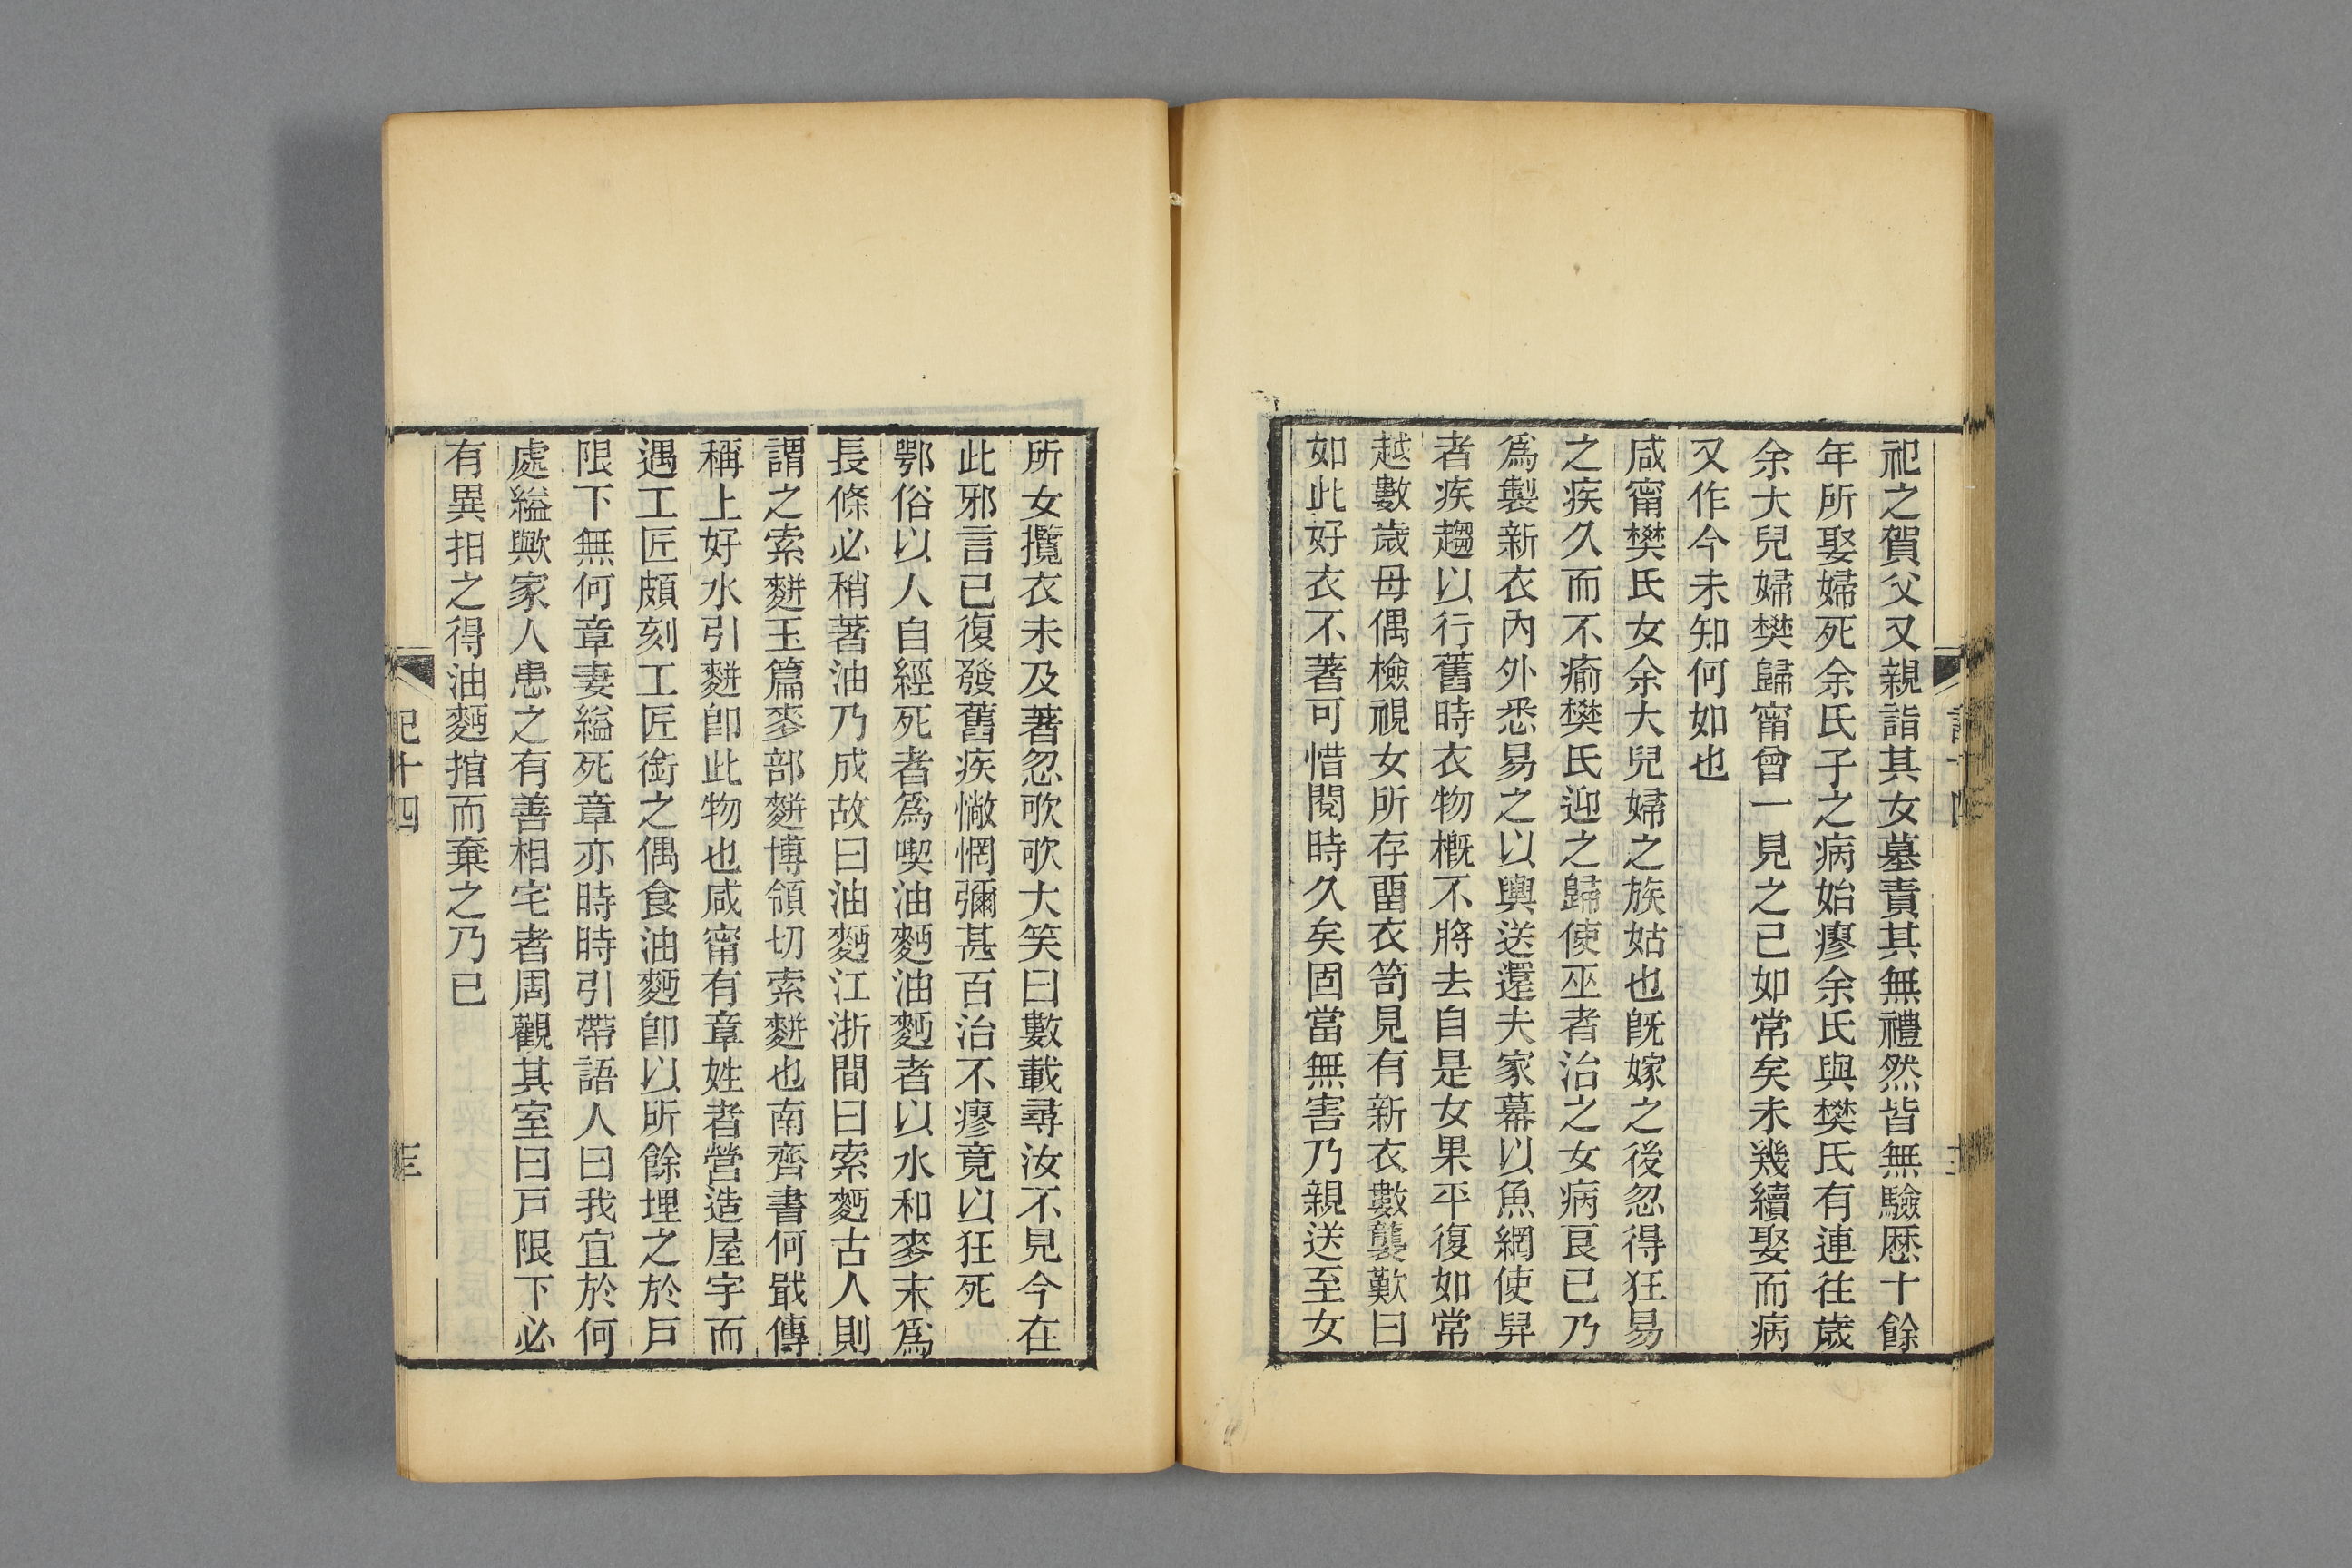 祀之賀父又親詣其女墓責其無禮然皆無驗歷十餘
年所娶婦死余氏子之病始瘳余氏與樊氏有連往歲
余大兒婦樊歸甯曾一見之已如常矣未幾續娶而病
又作今未知何如也
咸甯樊氏女余大兒婦之族姑也旣嫁之後忽得狂易
之疾久而不瘉樊氏迎之歸使巫者治之女病良已乃
爲製新衣內外悉易之以輿送還夫家幕以魚網使舁
者疾趨以行舊時衣物槪不將去自是女果平復如常
越數歲母偶檢視女所存畱衣笥見有新衣數襲歎曰
如此好衣不著可惜閱時久矣固當無害乃親送至女
所女攬衣未及著忽歌歌大笑曰數載尋汝不見今在
此邪言已復發舊疾懒惘彌甚百治不瘳竟以狂死
鄂俗以人自經死者爲喫油麪油麪者以水和麥末爲
長條必稍著油乃成故曰油麪江浙間曰索麪古人則
謂之索䴵玉篇麥部䴵博領切索䴵也南齊書何戢傳
稱上好水引䴵卽此物也咸甯有章姓者營造屋宇而
遇工匠頗刻工匠銜之偶食油麪卽以所餘埋之於戶
限下無何章妻縊死章亦時時引帶語人曰我宜於何
處縊歟家人患之有善相宅者周觀其室曰戶限下必
有異抇之得油麪捾而棄之乃已
記十四
三